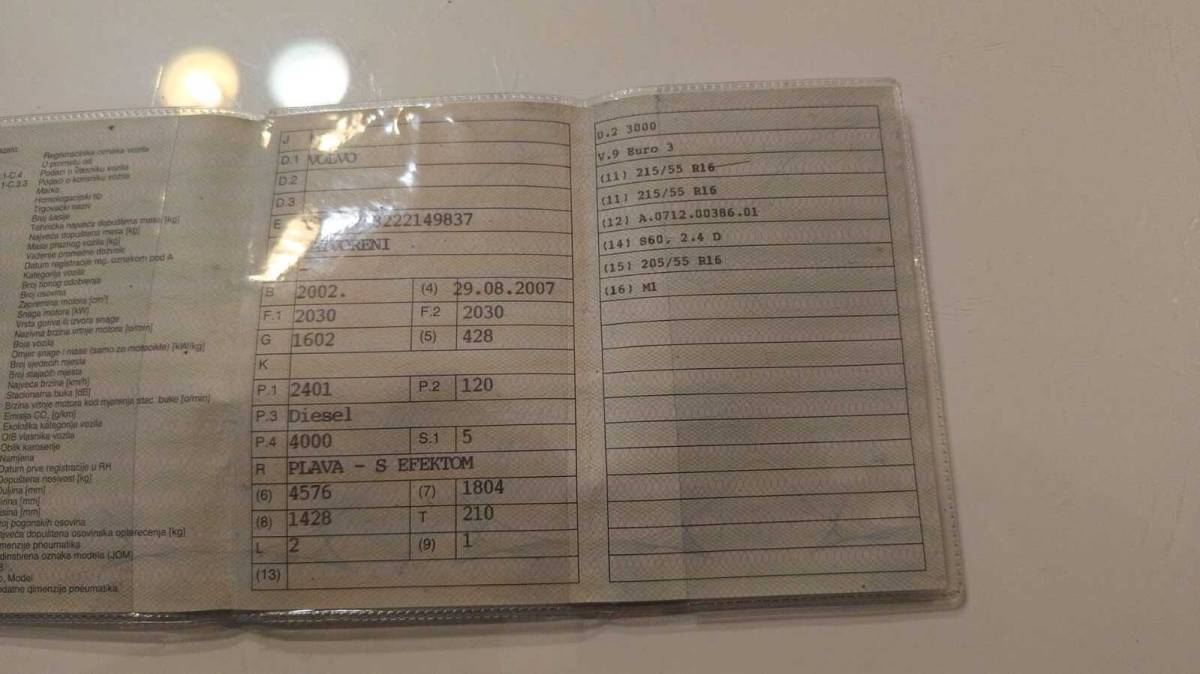 Registracijska oznaka vozila
U prometu od
1-C.4 Podaci o vlasniku vozila
1-C.3.3 Podaci o korisniku vozila
Marka
Homologacijski tip
Trgovački naziv
Broj šasije
Tehnička najveća dopuštena masa [kg]
Najveća dopuštena masa [kg]
Masa praznog vozila [kg]
Važenje prometne dozvole
Datum registracije reg. oznakom pod A
Kategorija vozila
Broj tipnog odobrenja
Broj osovina
Zapremina motora [cm³]
Snaga motora [kW]
Vrsta goriva ili izvora snage
Nazivna brzina vrtnje motora [o/min]
Boja vozila
Omjer snage i mase (samo za motocikle) [kW/kg]
Broj sjedećih mjesta
Broj stajaćih mjesta
Najveća brzina [km/h]
Stacionarna buka [dB]
Brzina vrtnje motora kod mjerenja stac. buke [o/min]
Emisija CO₂ [g/km]
Ekološka kategorija vozila
OIB vlasnika vozila
Oblik karoserije
Namjena
Datum prve registracije u RH
Dopuštena nosivost [kg]
[mm]
[mm]
[mm]
pogonskih osovina
dopuštena osovinska opterećenja [kg]
pneumatika
oznaka modela (JOM)
Model
dimenzije pneumatika
J
D.1 VOLVO
D.2
D.3
E 222149837
B 2002. (4) 29.08.2007
F.1 2030 F.2 2030
G 1602 (5) 428
K
P.1 2401 P.2 120
P.3 Diesel
P.4 4000 S.1 5
R PLAVA - S EFEKTOM
(6) 4576 (7) 1804
(8) 1428 T 210
L 2 (9) 1
(13)
D.2 3000
V.9 Euro 3
(11) 215/55 R16
(11) 215/55 R16
(12) A.0712.00386.01
(14) S60, 2.4 D
(15) 205/55 R16
(16) M1